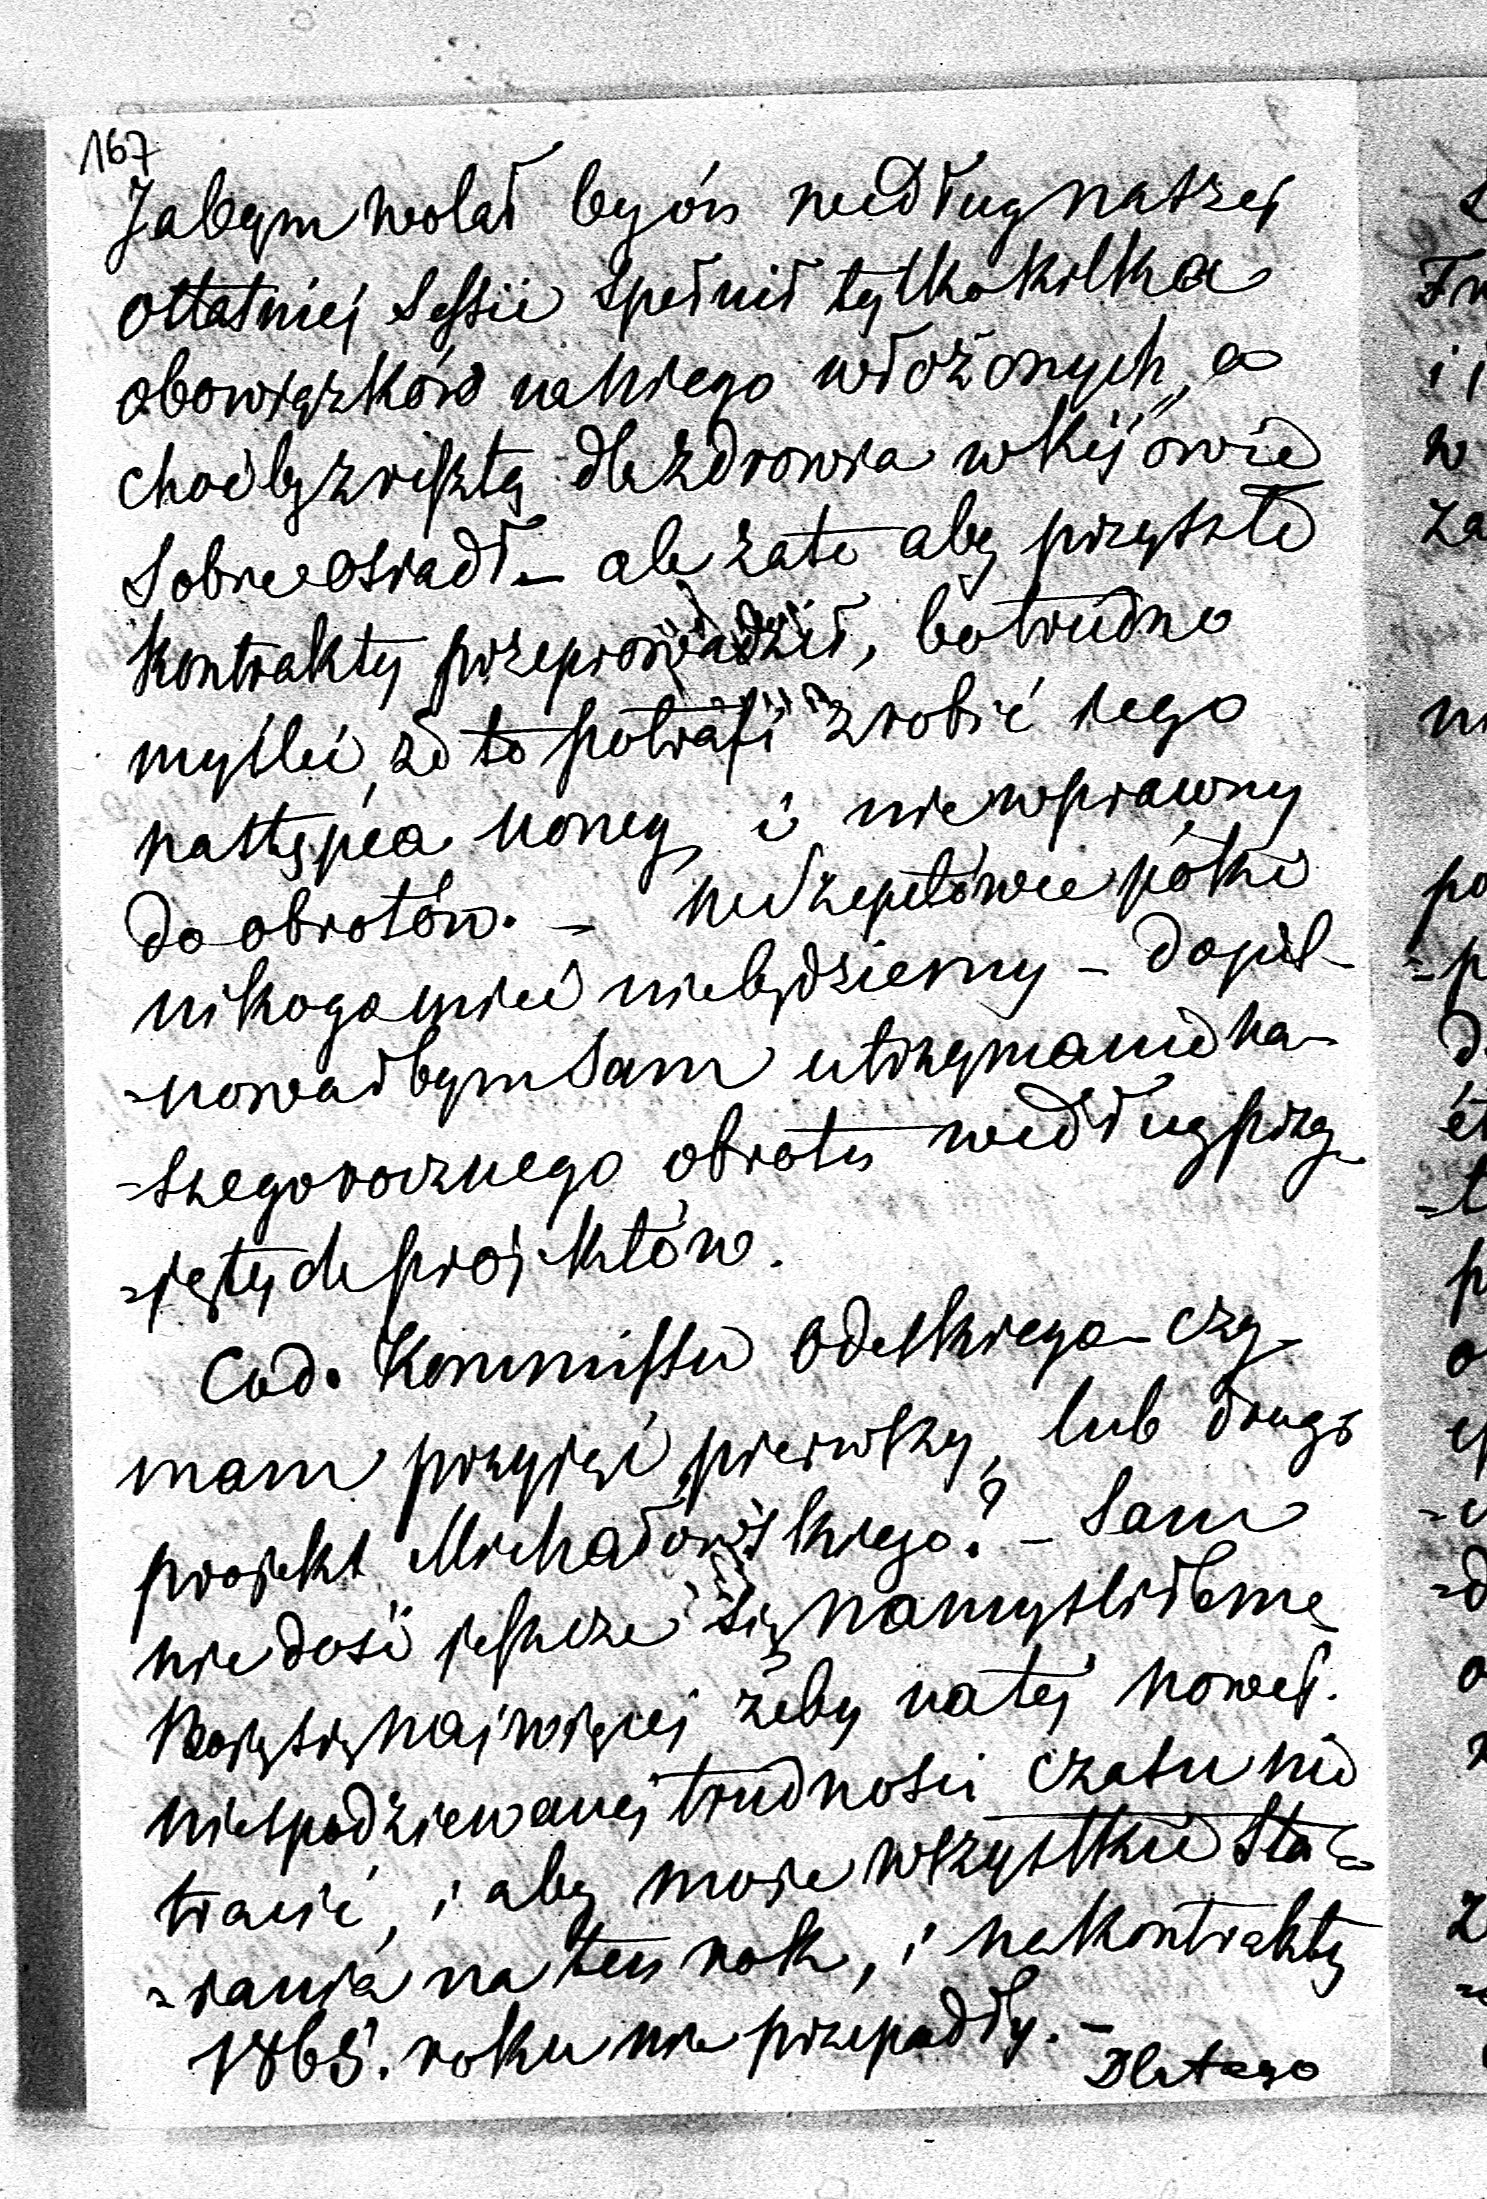 167
Jabym wolał by ón według naszej
ostatniej Sessii spełnił tylko kilka
obowiązków na niego włożonych, a
choćby zresztą dla zdrowia w Kijowie
sobie osiadł – ale zato aby przyszłe
kontrakty przeprowadził, bo trudno
myśleć, że to potrafi zrobić jego
następca nowy, i niewprawny
do obrotów. – W Szepetówce póki
nikogo mieć niebędziemy – dopil-
-nowałbym sam utrzymanie na-
-szego rocznego obrotu według przy-
-jętych projektów.
Co do Kommissu Odeskiego – czy
mam przyjąć pierwszy, lub drugi
projekt Michałowskiego? – Sam
nie dość jeszcze się namyśliłem
Boję się najwięcej żeby na tej nowej
niespodziewanej trudności czasu nie
tracić, i aby moje wszystkie sta-
-rania na ten rok, i na kontrakty
1865. roku nie przepadły. –
Dlatego